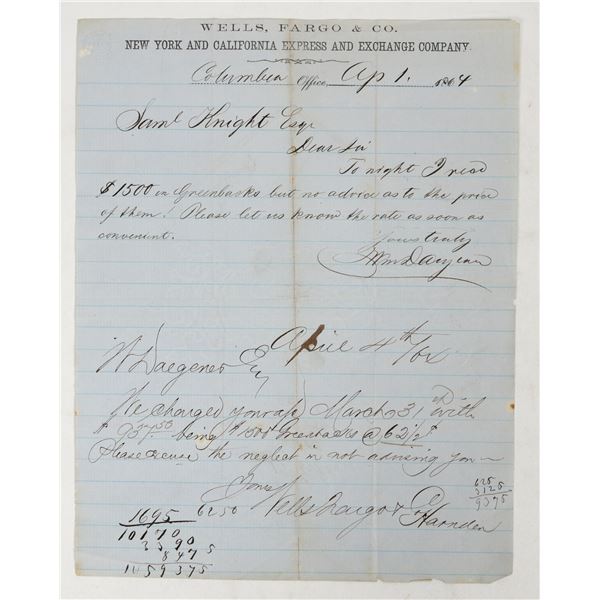 WELLS, FARGO & CO.
NEW YORK AND CALIFORNIA EXPRESS AND EXCHANGE COMPANY.
Columbia Office, Ap 1. 1864
Saml Knight Esqr
Dear Sir
To night I recd
$1500 in Greenbacks but no advice as to the price
of them. Please let us know the rate as soon as
convenient.
Yours truly
Wm Daegener
April 4th/64
W Daegener Esq
We charged your a/c March 31st with
$937.50 being $1500 Greenbacks @ 62½¢
Please excuse the neglect in not advising you—
Yours
Wells Fargo & Co
Harnden
625
3125
9375
1695 6250
10170
3390
8475
1059375